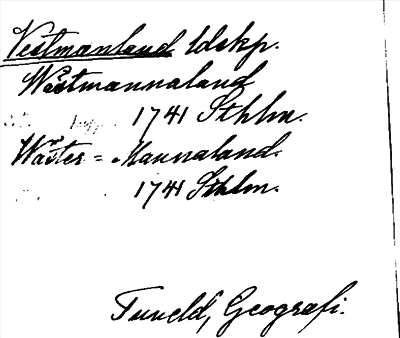 Vestmanland ldskp.
Westmannaland
1741 Sthlm.
Wäster = Mannaland.
1741 Sthlm.
Tuneld, Geografi.